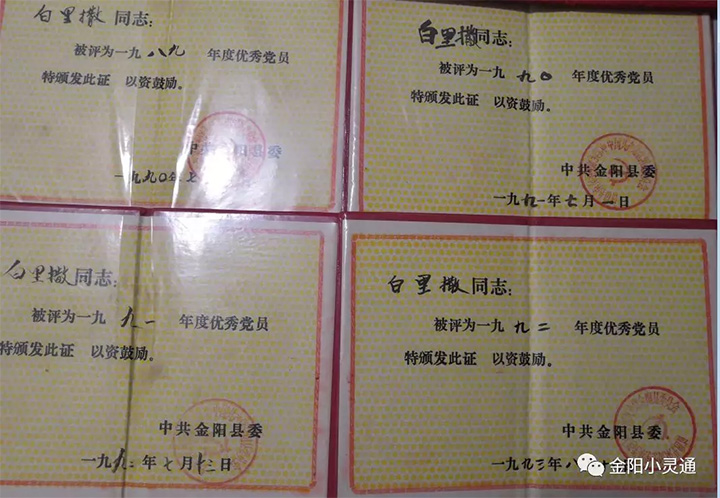 白里撒同志:
被评为一九八九 年度优秀党员
特颁发此证 以资鼓励。
中共金阳县委
一九九〇年七
白里撒同志:
被评为一九九〇 年度优秀党员
特颁发此证 以资鼓励。
中共金阳县委
一九九一年七月一日
白里撒同志:
被评为一九九一 年度优秀党员
特颁发此证 以资鼓励。
中共金阳县委
一九九二年七月十三日
白里撒同志:
被评为一九九二 年度优秀党员
特颁发此证 以资鼓励。
中共金阳县委
一九九三年八
金阳小灵通